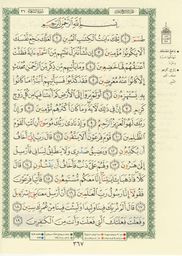 بِسْمِ اللَّهِ الرَّحْمَٰنِ الرَّحِيمِ
طسٓمٓ ١ تِلْكَ ءَايَٰتُ ٱلْكِتَٰبِ ٱلْمُبِينِ ٢ لَعَلَّكَ بَٰخِعٌ نَّفْسَكَ
أَلَّا يَكُونُوا۟ مُؤْمِنِينَ ٣ إِن نَّشَأْ نُنَزِّلْ عَلَيْهِم مِّنَ ٱلسَّمَآءِ ءَايَةً فَظَلَّتْ
أَعْنَٰقُهُمْ لَهَا خَٰضِعِينَ ٤ وَمَا يَأْتِيهِم مِّن ذِكْرٍ مِّنَ ٱلرَّحْمَٰنِ مُحْدَثٍ
إِلَّا كَانُوا۟ عَنْهُ مُعْرِضِينَ ٥ فَقَدْ كَذَّبُوا۟ فَسَيَأْتِيهِمْ أَنۢبَٰٓؤُا۟ مَا كَانُوا۟
بِهِۦ يَسْتَهْزِءُونَ ٦ أَوَلَمْ يَرَوْا۟ إِلَى ٱلْأَرْضِ كَمْ أَنۢبَتْنَا فِيهَا مِن كُلِّ زَوْجٍ
كَرِيمٍ ٧ إِنَّ فِى ذَٰلِكَ لَءَايَةً وَمَا كَانَ أَكْثَرُهُم مُّؤْمِنِينَ ٨ وَإِنَّ رَبَّكَ
لَهُوَ ٱلْعَزِيزُ ٱلرَّحِيمُ ٩ وَإِذْ نَادَىٰ رَبُّكَ مُوسَىٰٓ أَنِ ٱئْتِ ٱلْقَوْمَ ٱلظَّٰلِمِينَ
١٠ قَوْمَ فِرْعَوْنَ أَلَا يَتَّقُونَ ١١ قَالَ رَبِّ إِنِّىٓ أَخَافُ أَن يُكَذِّبُونِ
١٢ وَيَضِيقُ صَدْرِى وَلَا يَنطَلِقُ لِسَانِى فَأَرْسِلْ إِلَىٰ هَٰرُونَ
١٣ وَلَهُمْ عَلَىَّ ذَنۢبٌ فَأَخَافُ أَن يَقْتُلُونِ ١٤ قَالَ
كَلَّا فَٱذْهَبَا بِـَٔايَٰتِنَآ إِنَّا مَعَكُم مُّسْتَمِعُونَ ١٥ فَأْتِيَا فِرْعَوْنَ
فَقُولَآ إِنَّا رَسُولُ رَبِّ ٱلْعَٰلَمِينَ ١٦ أَنْ أَرْسِلْ مَعَنَا بَنِىٓ إِسْرَٰٓءِيلَ
١٧ قَالَ أَلَمْ نُرَبِّكَ فِينَا وَلِيدًا وَلَبِثْتَ فِينَا مِنْ عُمُرِكَ سِنِينَ ١٨
وَفَعَلْتَ فَعْلَتَكَ ٱلَّتِى فَعَلْتَ وَأَنتَ مِنَ ٱلْكَٰفِرِينَ ١٩
٣٦٧